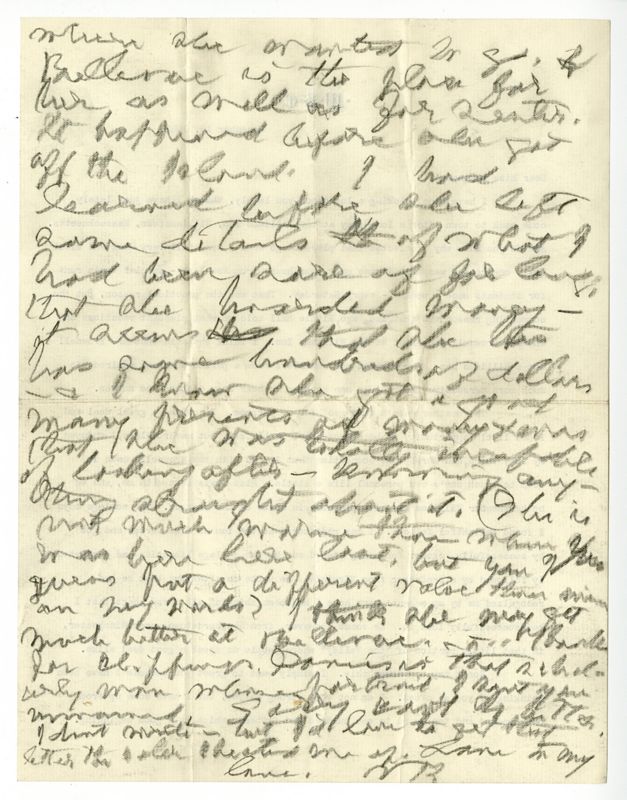 where she wanted to go. &
Bellevue is the place for
her as well as for
It happened before she got
off the Island. I had
learned before she left
some details of what I
had been sure of for long,
that she hoarded money –
it seems that she
has some hundreds of dollars
– & I know she got a great
many presents of money & was
that she was totally incapable
of looking after – knowing any-
thing straight about it. (She is
not much worse than when you
was here last, but you & I
guess put a different value than mine
on key words) I think she may get
much better at Bellevue. – Thanks
for clippings. that schol-
arly man whose portrait I sent you
unnamed.
I don't write – but I'd love to get that
letter the cheated me of. Love to my
love.